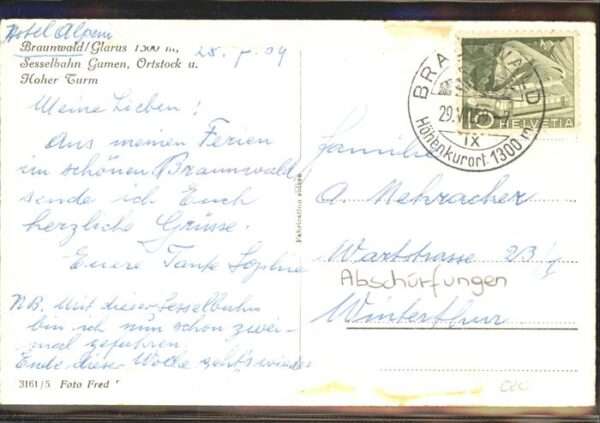 Hotel Alpina
Braunwald/Glarus 1300 m,
Sesselbahn Gumen, Ortstock u.
Hoher Turm
Meine Lieben!
Aus meinen Ferien
im schönen Braunwald
sende ich Euch
herzliche Grüsse.
Eure Tante Sophie
NB. Mit dieser Sesselbahn
bin ich nun schon zwei-
mal gefahren.
Ende dieser Woche geht's wieder
3161/5 Foto Fred
Fabrication suisse
BRAUNWALD
29.VII
IX
Höhenkurort 1300 m
10 HELVETIA
Familie
A. Mehracher
Wartstrasse
Abschürfungen
Winterthur